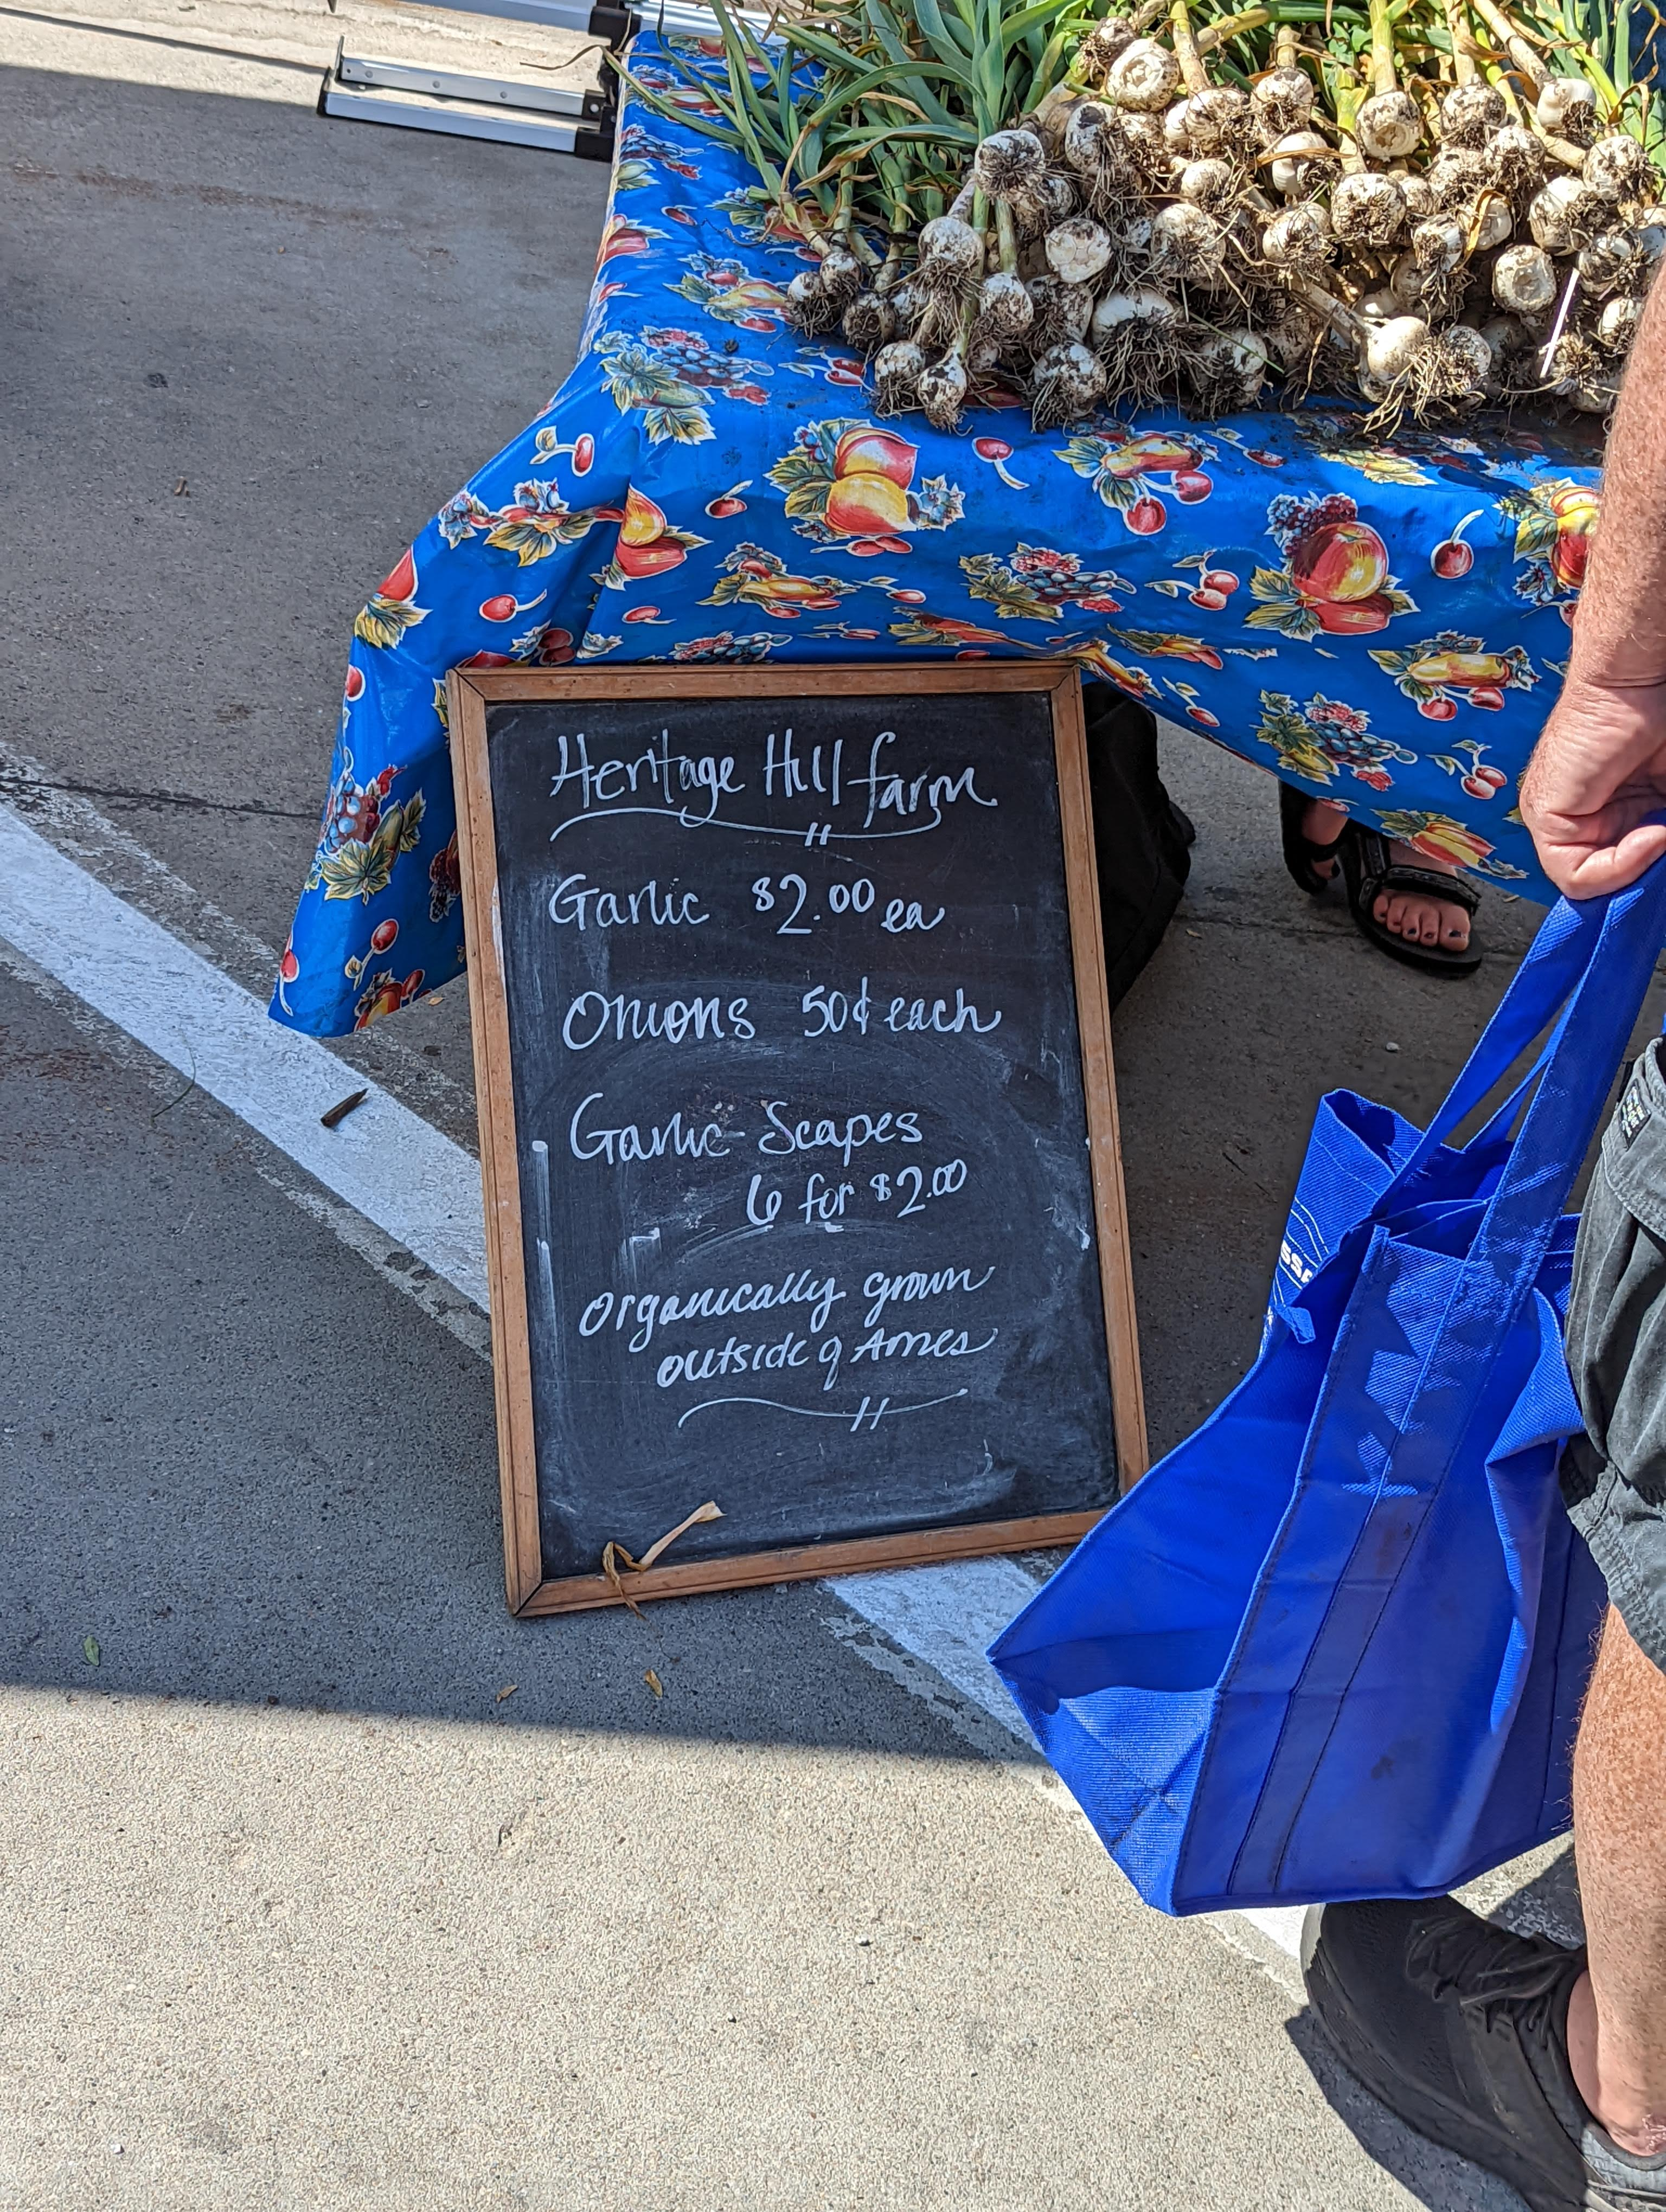 Heritage Hill farm
Garlic $2.00 ea
Onions 50¢ each
Garlic Scapes
6 for $2.00
Organically grown
outside of Ames